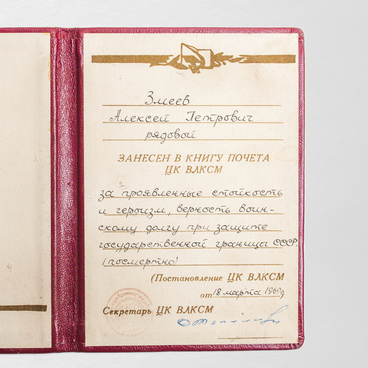 Змеев
Алексей Петрович
рядовой
ЗАНЕСЕН В КНИГУ ПОЧЕТА
ЦК ВЛКСМ
за проявленные стойкость
и героизм, верность воин-
скому долгу при защите
государственной границы СССР
(посмертно)
(Постановление ЦК ВЛКСМ
от 18 марта 196
Секретарь ЦК ВЛКСМ